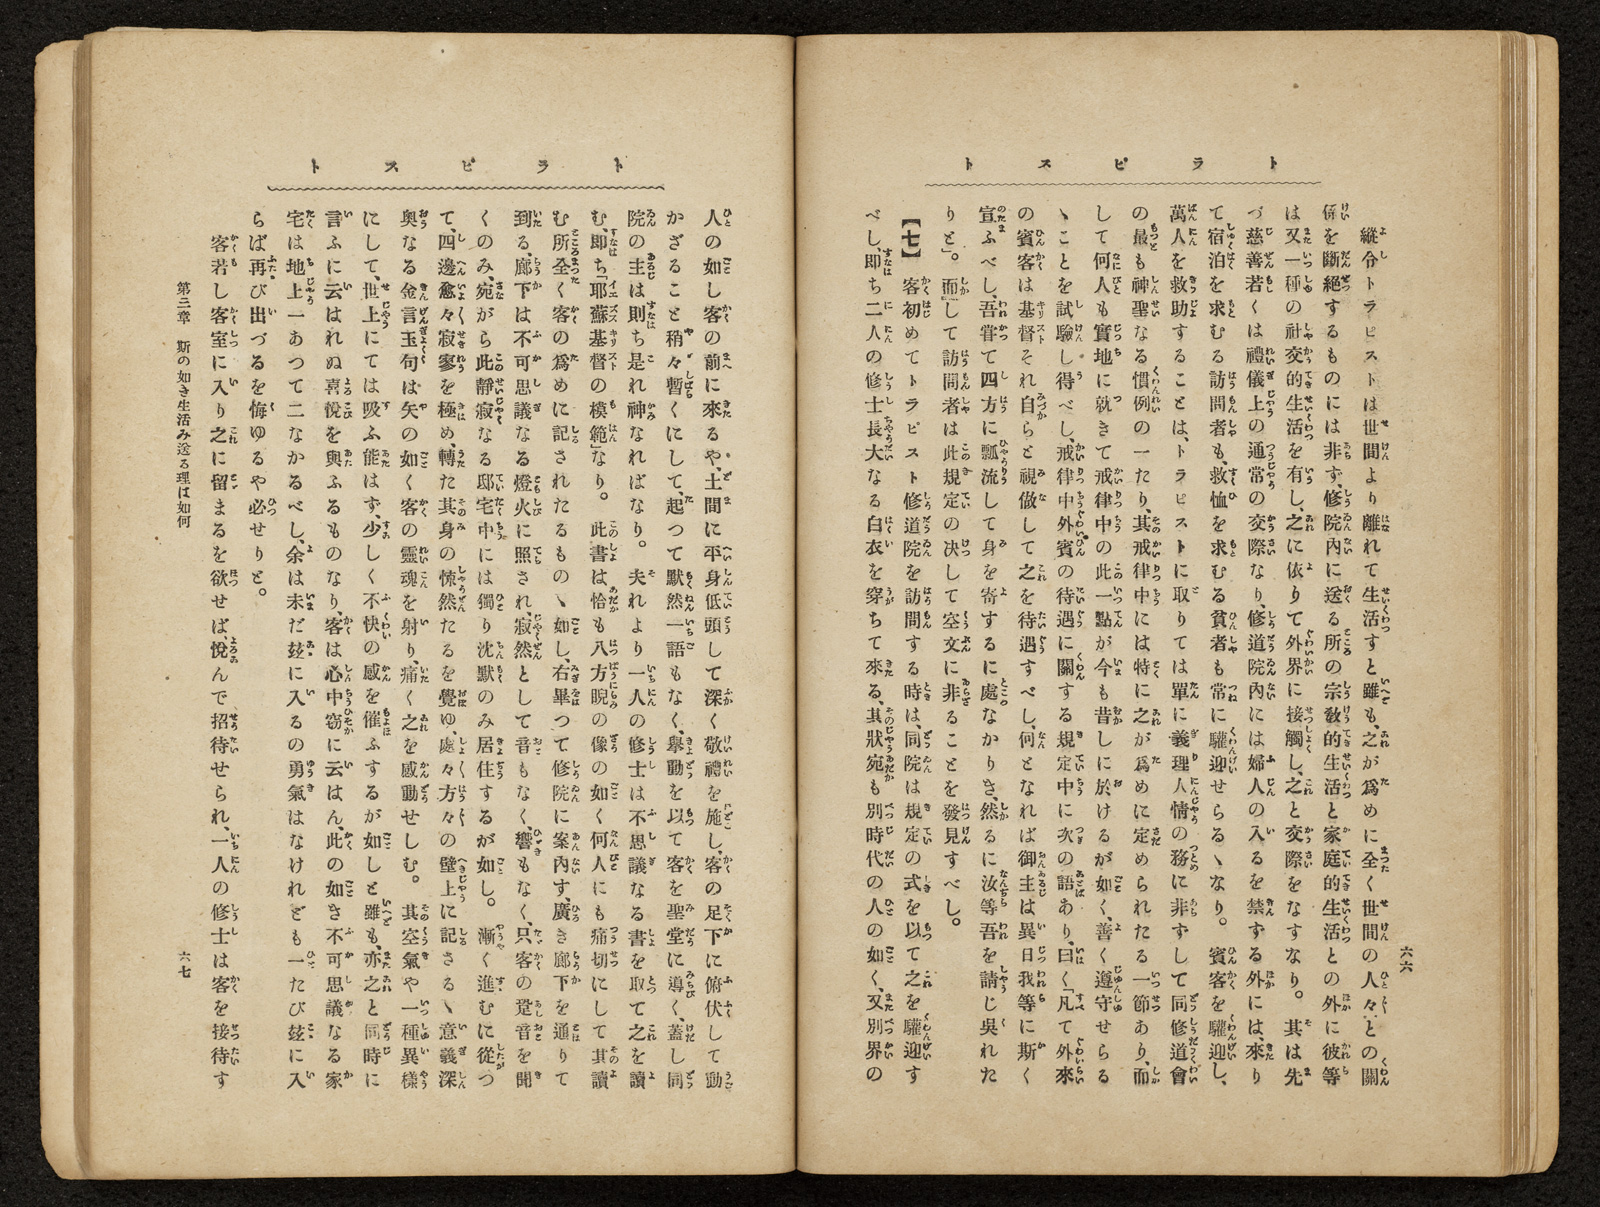 トラピスト
六六
縱令トラピストは世間より離れて生活すと雖も、之が爲めに全く世間の人々との關
係を斷絕するものには非ず、修院內に送る所の宗敎的生活と家庭的生活との外に彼等
は又一種の社交的生活を有し、之に依りて外界に接觸し、之と交際をなすなり。其は先
づ慈善若くは禮儀上の通常の交際なり、修道院內には婦人の入るを禁ずる外には、來り
て宿泊を求むる訪問者も、救恤を求むる貧者も常に驩迎せらるゝなり。賓客を驩迎し、
萬人を救助することは、トラピストに取りては單に義理人情の務に非ずして同修道會
の最も神聖なる慣例の一たり、其戒律中には特に之が爲めに定められたる一節あり、而
して何人も實地に就きて戒律中の此一點が今も昔しに於けるが如く、善く遵守せらる
ゝことを試驗し得べし、戒律中外賓の待遇に關する規定中に次の語あり、曰く「凡て外來
の賓客は基督それ自らと視做して之を待遇すべし、何となれば御主は異日我等に斯く
宣ふべし、吾嘗て四方に瓢流して身を寄するに處なかりき、然るに汝等吾を請じ吳れた
りと」。而して訪問者は此規定の决して空文に非ることを發見すべし。
【七】　客初めてトラピスト修道院を訪問する時は、同院は規定の式を以て之を驩迎す
べし、即ち二人の修士長大なる白衣を穿ちて來る、其狀宛も別時代の人の如く、又別界の
トラピスト
人の如し客の前に來るや、土間に平身低頭して深く敬禮を施し、客の足下に俯伏して動
かざること稍々暫くにして、起つて默然一語もなく、擧動を以て客を聖堂に導く、蓋し同
院の主は則ち是れ神なればなり。夫れより一人の修士は不思議なる書を取て之を讀
む、即ち「耶蘇基督の模範」なり。此書は恰も八方睨の像の如く何人にも痛切にして其讀
む所全く客の爲めに記されたるものゝ如し、右畢つて修院に案內す、廣き廊下を通りて
到る、廊下は不可思議なる燈火に照され、寂然として音もなく、響もなく、只客の跫音を聞
くのみ、宛がら此靜寂なる邸宅中には獨り沈默のみ居住するが如し。漸く進むに從つ
て、四邊愈々寂寥を極め、轉た其身の悚然たるを覺ゆ、處々方々の壁上に記さるゝ意義深
奧なる金言玉句は矢の如く客の靈魂を射り、痛く之を感動せしむ。其空氣や一種異樣
にして、世上にては吸ふ能はず、少しく不快の感を催ふするが如しと雖も、亦之と同時に
言ふに云はれぬ喜悅を與ふるものなり、客は心中窃に云はん、此の如き不可思議なる家
宅は地上一あつて二なかるべし、余は未だ玆に入るの勇氣はなけれども一たび玆に入
らば再び出づるを悔ゆるや必せりと。
客若し客室に入り之に留まるを欲せば、悅んで招待せられ、一人の修士は客を接待す
第三章　斯の如き生活み送る理は如何
六七